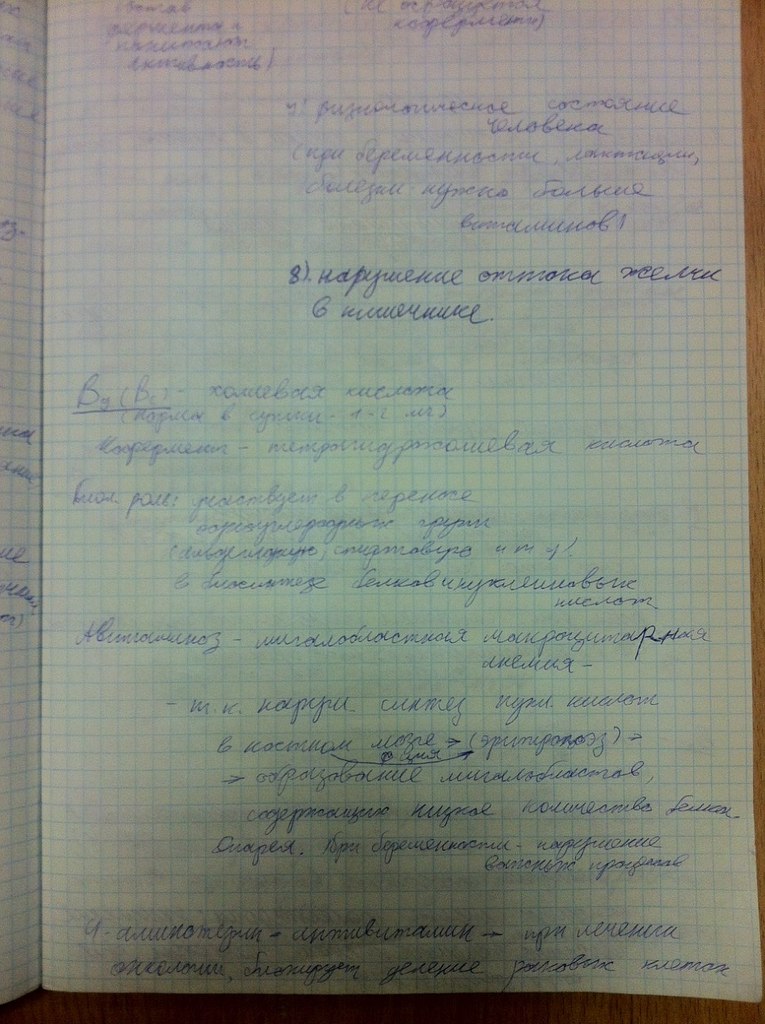 состав
фермента и
понижает
активность)
(не образуется
кофермент)
7) физиологическое состояние
человека
(при беременности, лактации,
болезни нужно больше
витаминов)
8) нарушение оттока желчи
в кишечнике.
B9 (Bc) - фолиевая кислота
(надма в сутки - 1-2 мг)
Кофермент - тетрагидрофолиевая кислота
Биол. роль: участвует в переносе
одноуглеродных групп
и т.д.
в биосинтезе белков и нуклеиновых
кислот
Авитаминоз - мегалобластная макроцитарная
анемия -
- т.к. наруш синтез нукл кислот
в костном мозге → (эритропоэз) →
→ образование мегалобластов,
содержащих низкое количество белка.
Диарея. При беременности - нарушение
важных процессов
аминотерин - антивитамин → при лечении
онкологии, блокирует деление раковых клеток